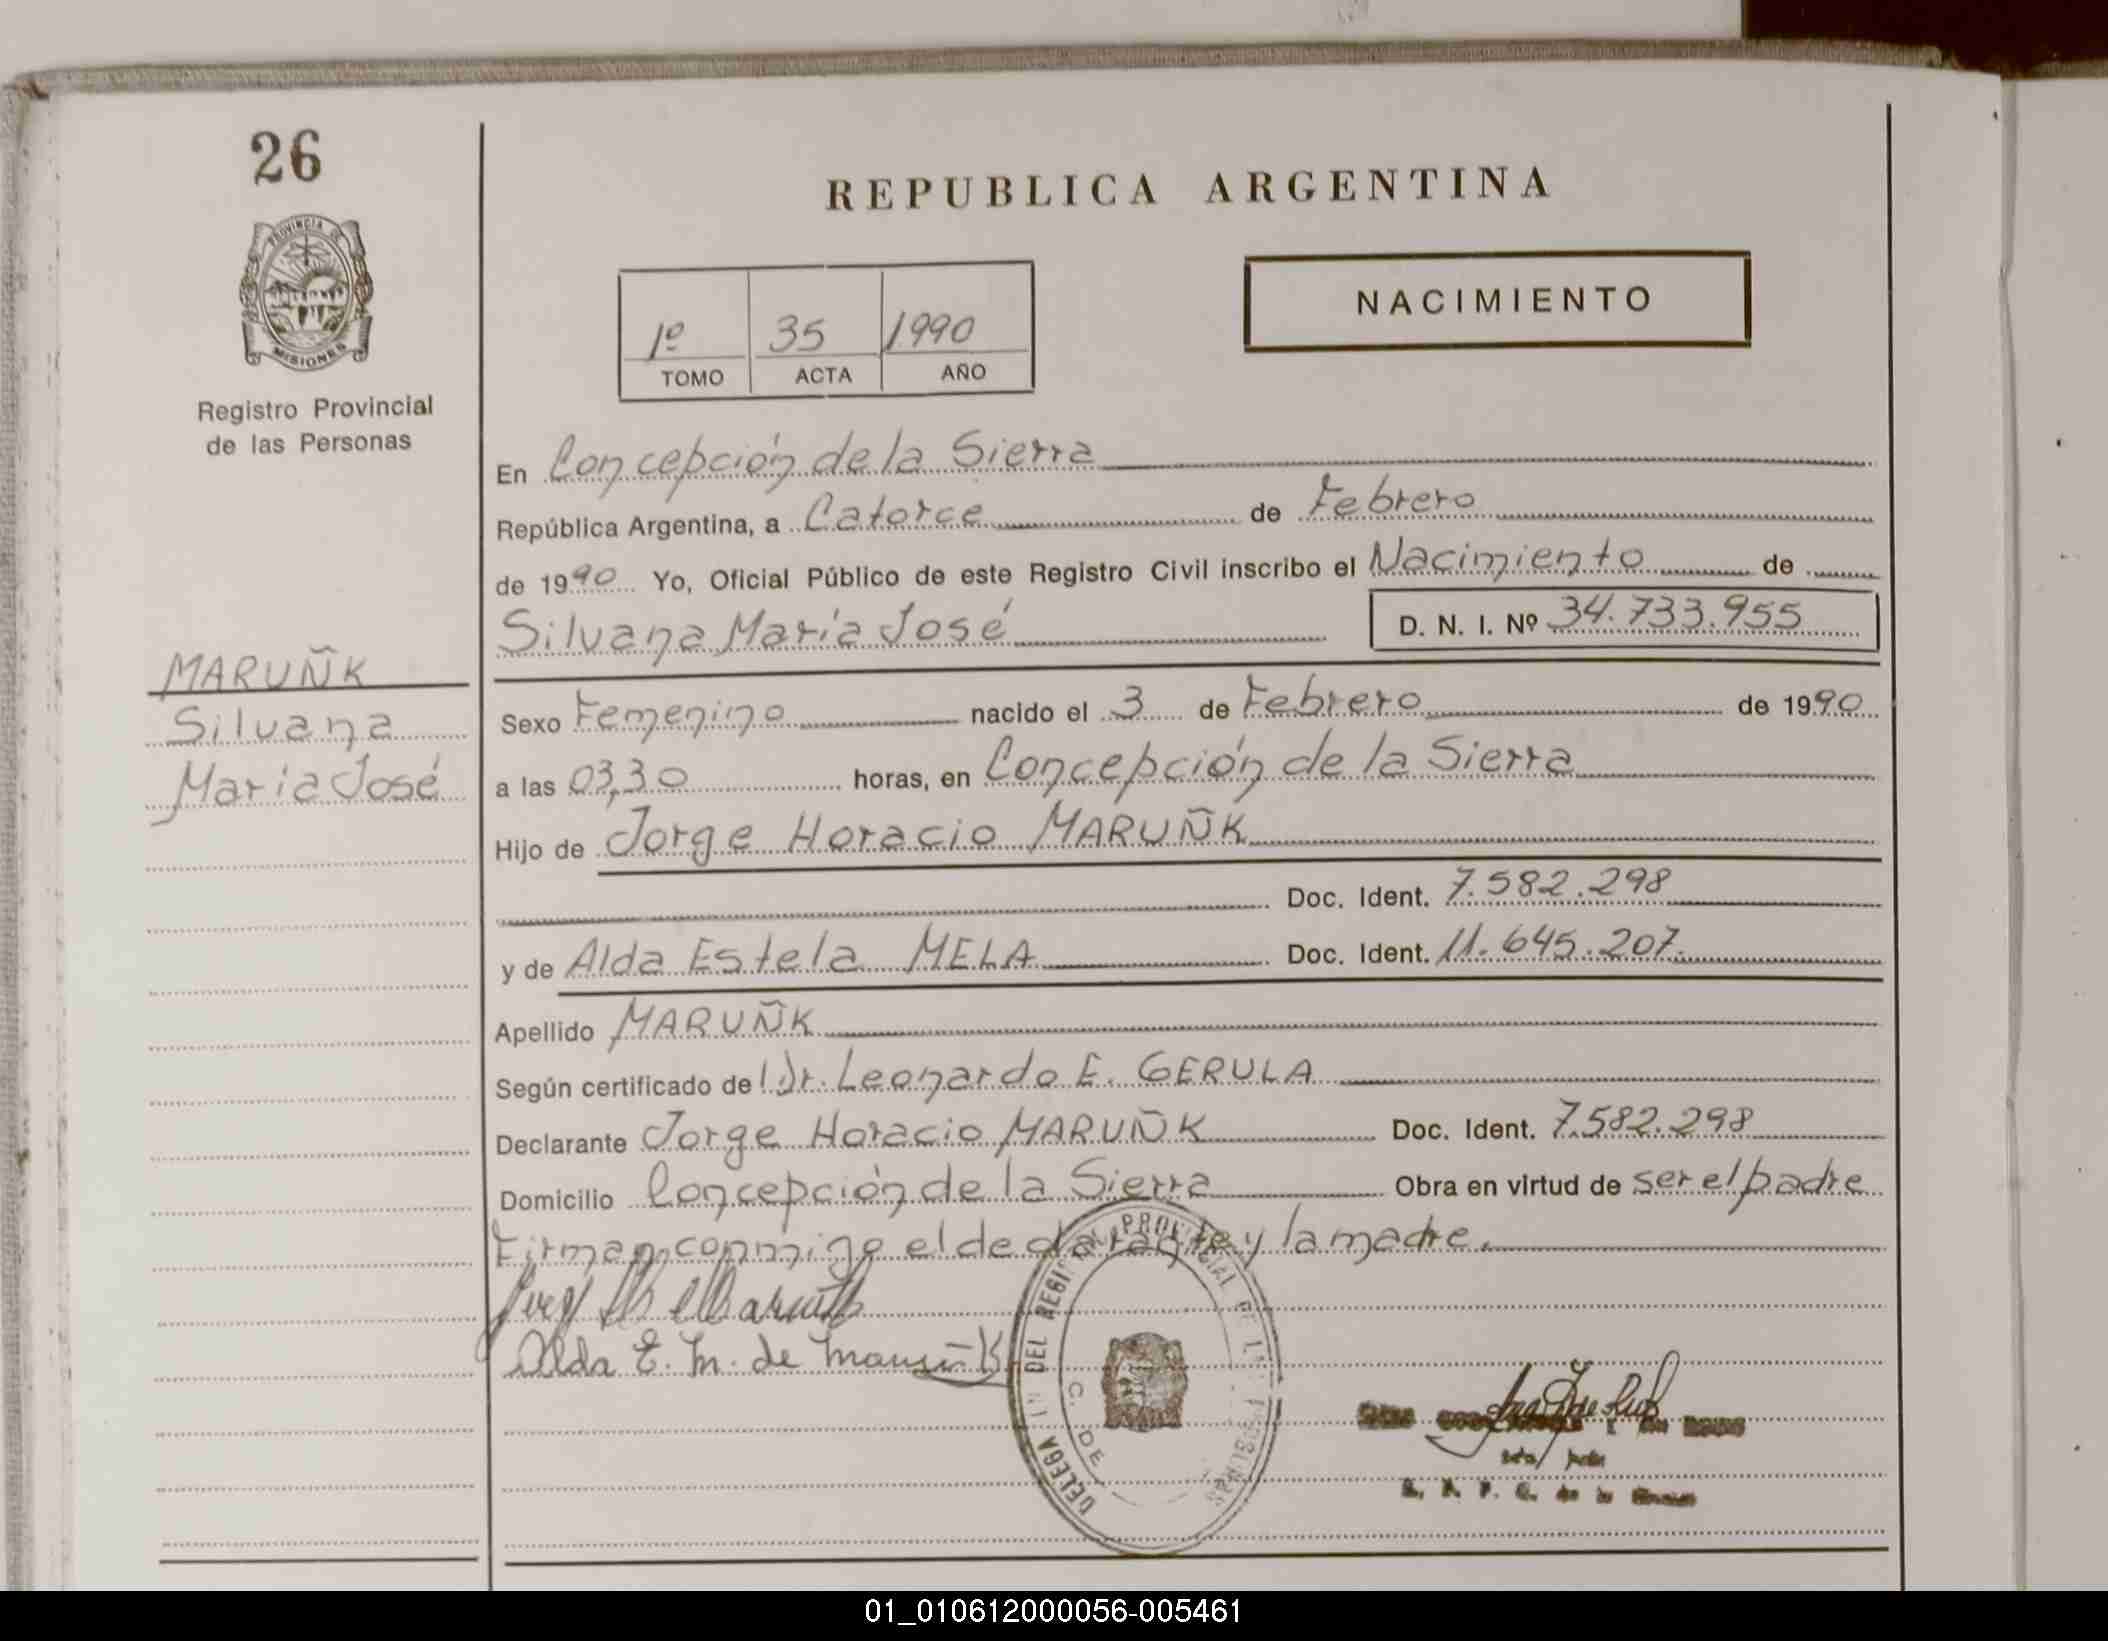 26
REPUBLICA ARGENTINA
PROVINCIA DE
MISIONES
Registro Provincial
de las Personas
1º 35 1990
TOMO ACTA AÑO
NACIMIENTO
En Concepción de la Sierra
República Argentina, a Catorce de Febrero
de 1990 Yo, Oficial Público de este Registro Civil inscribo el Nacimiento de
Silvana María José D. N. I. Nº 34.733.955
MARUÑK
Silvana
María José
Sexo Femenino nacido el 3 de Febrero de 1990
a las 03,30 horas, en Concepción de la Sierra
Hijo de Jorge Horacio MARUÑK
Doc. Ident. 7.582.298
y de Alda Estela MELA Doc. Ident. 11.645.207.
Apellido MARUÑK
Según certificado de l Dr. Leonardo E. GERULA
Declarante Jorge Horacio MARUÑK Doc. Ident. 7.582.298
Domicilio Concepción de la Sierra Obra en virtud de ser el padre
Firman conmigo el declarante y la madre.
Alda E. M. de Maruñk
DEL REGISTRO PROVINCIAL DE
C. DE
01_010612000056-005461